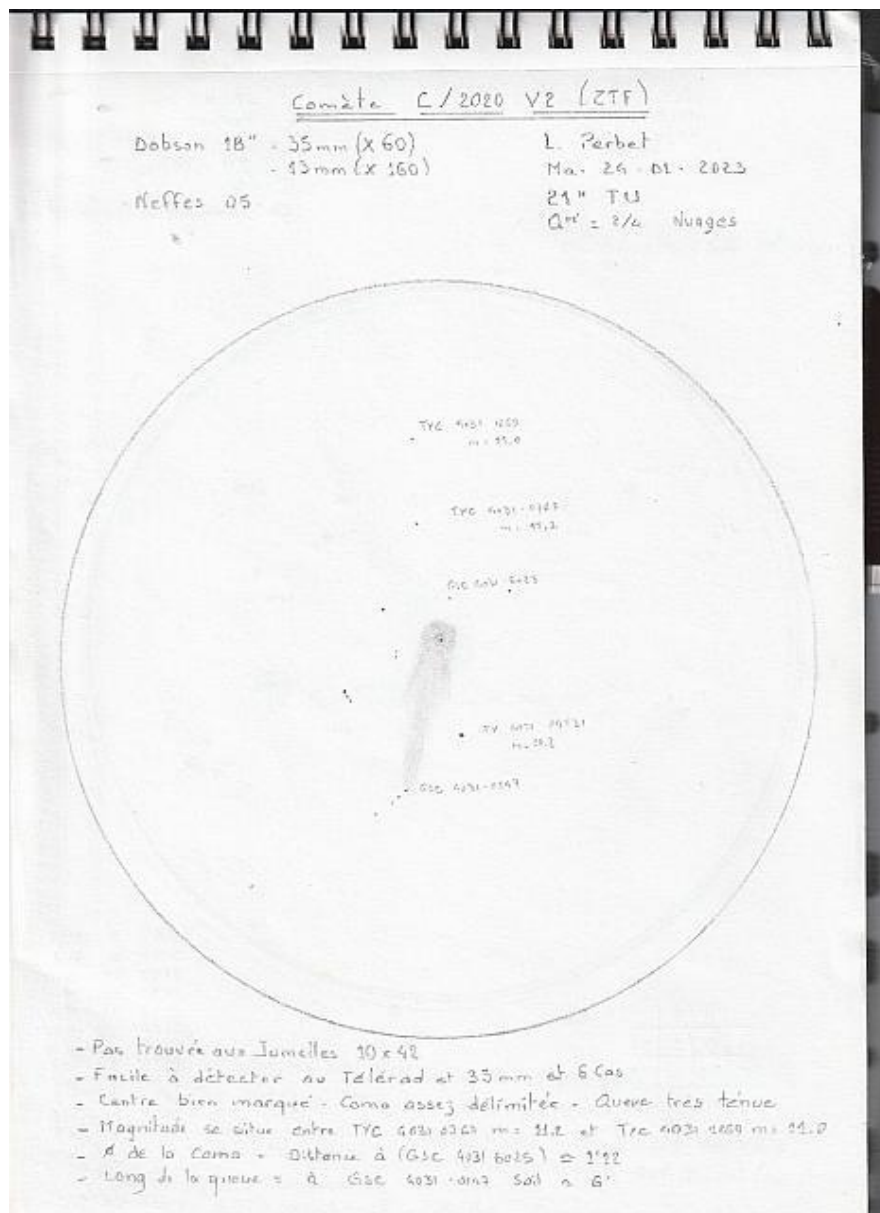 Comète C/2020 V2 (ZTF)
Dobson 18" - 35mm (X 60)
- 13mm (X 160)
Neffes 05
L. Perbet
Ma. 24-01-2023
21H TU
Nuages
TYC 4031 1269
m = 11.0
TYC 4031-0767
m = 11,2
GSC 4031 6025
m =
GSC 4031-0147
- Pas trouvée aux Jumelles 10x42
- Facile à détecter au Télérad et 35mm et 6 Cas
- Centre bien marqué - Coma assez délimitée - Queue très ténue
- Magnitude se situe entre TYC 4031 m = 11.2 et TYC 4031 1269 m = 11.0
- Ø de la Coma = Distance à (GSC 4031 6025) ≃ 1'12
- Long de la queue = à GSC 4031-0147 Soit ≃ 6'